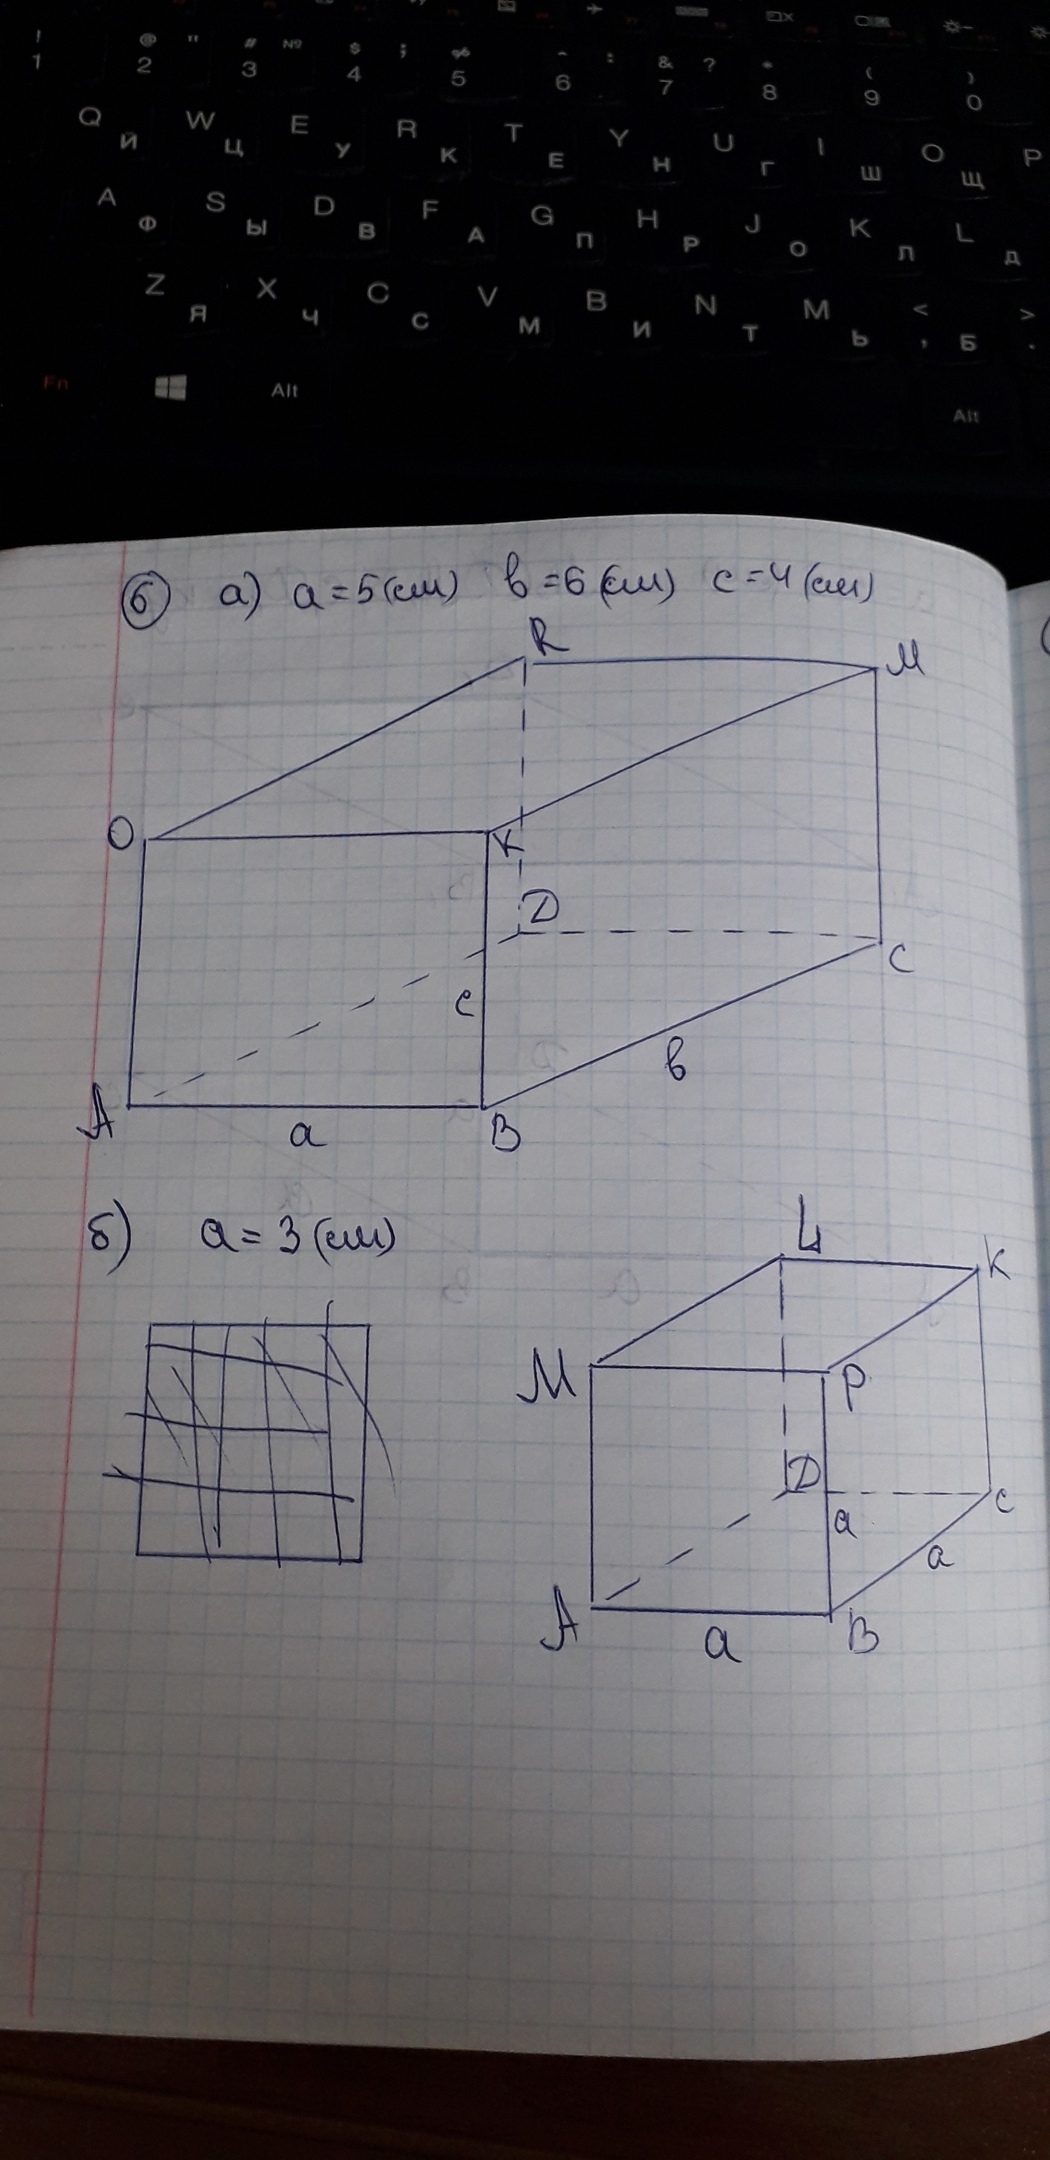 ! @ " # № $ ; ≠ ^ : & ? * ( )
1 2 3 4 5 6 7 8 9 0
Q Й W Ц E У R К T Е Y Н U Г I Ш O Щ P
A Ф S Ы D В F А G П H Р J О K Л L Д
Z Я X Ч C С V М B И N Т M Ь < , Б > .
Fn Alt Alt
6 а) a = 5 (см) в = 6 (см) c = 4 (см)
R
M
O
K
D
c
C
в
A
a
B
б) a = 3 (см)
L
K
M
P
D
a
C
a
A
a
B